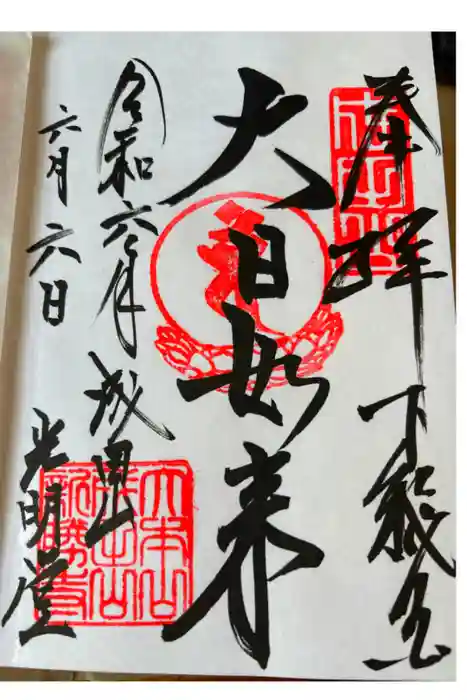 奉拝 下総国
大日如来
令和六年 成田山
六月六日 光明堂
大本山
成田山
新勝寺